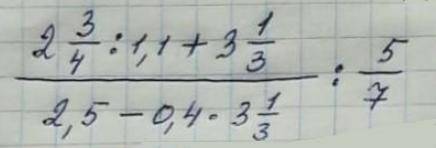 2 3/4 : 1,1 + 3 1/3
2,5 − 0,4 · 3 1/3
: 5/7